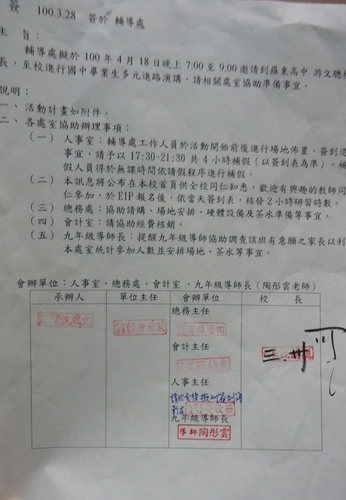 簽 100.3.28 簽於 輔導處
主 旨：
輔導處擬於 100 年 4 月 18 日晚上 7:00 至 9:00 邀請到羅東高中 游文聰校
長，至校進行國中畢業生多元進路演講，請相關處室協助準備事宜。
說明：
一、活動計畫如附件。
二、各處室協助辦理事項：
（一） 人事室：輔導處工作人員於活動開始前後進行場地佈置、簽到退
事宜，請予以 17:30-21:30 共 4 小時補假（以簽到表為準）。補
假人員得於無課時間依請假程序進行補假。
（二） 本訊息將公布在本校首頁供全校同仁知悉，歡迎有興趣的教師同
仁參加，於 EIP 報名後，依當天簽到表，核發 2 小時研習時數。
（三） 總務處：協助請購、場地安排、硬體設備及茶水準備等事宜。
（四） 會計室：請協助經費核銷。
（五） 九年級導師長：提醒九年級導師協助調查該班有意願之家長以利
本處室統計參加人數並安排場地、茶水等事宜。
會辦單位：人事室、總務處、會計室、九年級導師長（陶彤雲老師）
承辦人 單位主任 會辦單位 校 長
總務主任
會計主任
可
人事主任
九年級導師長
導師 陶彤雲